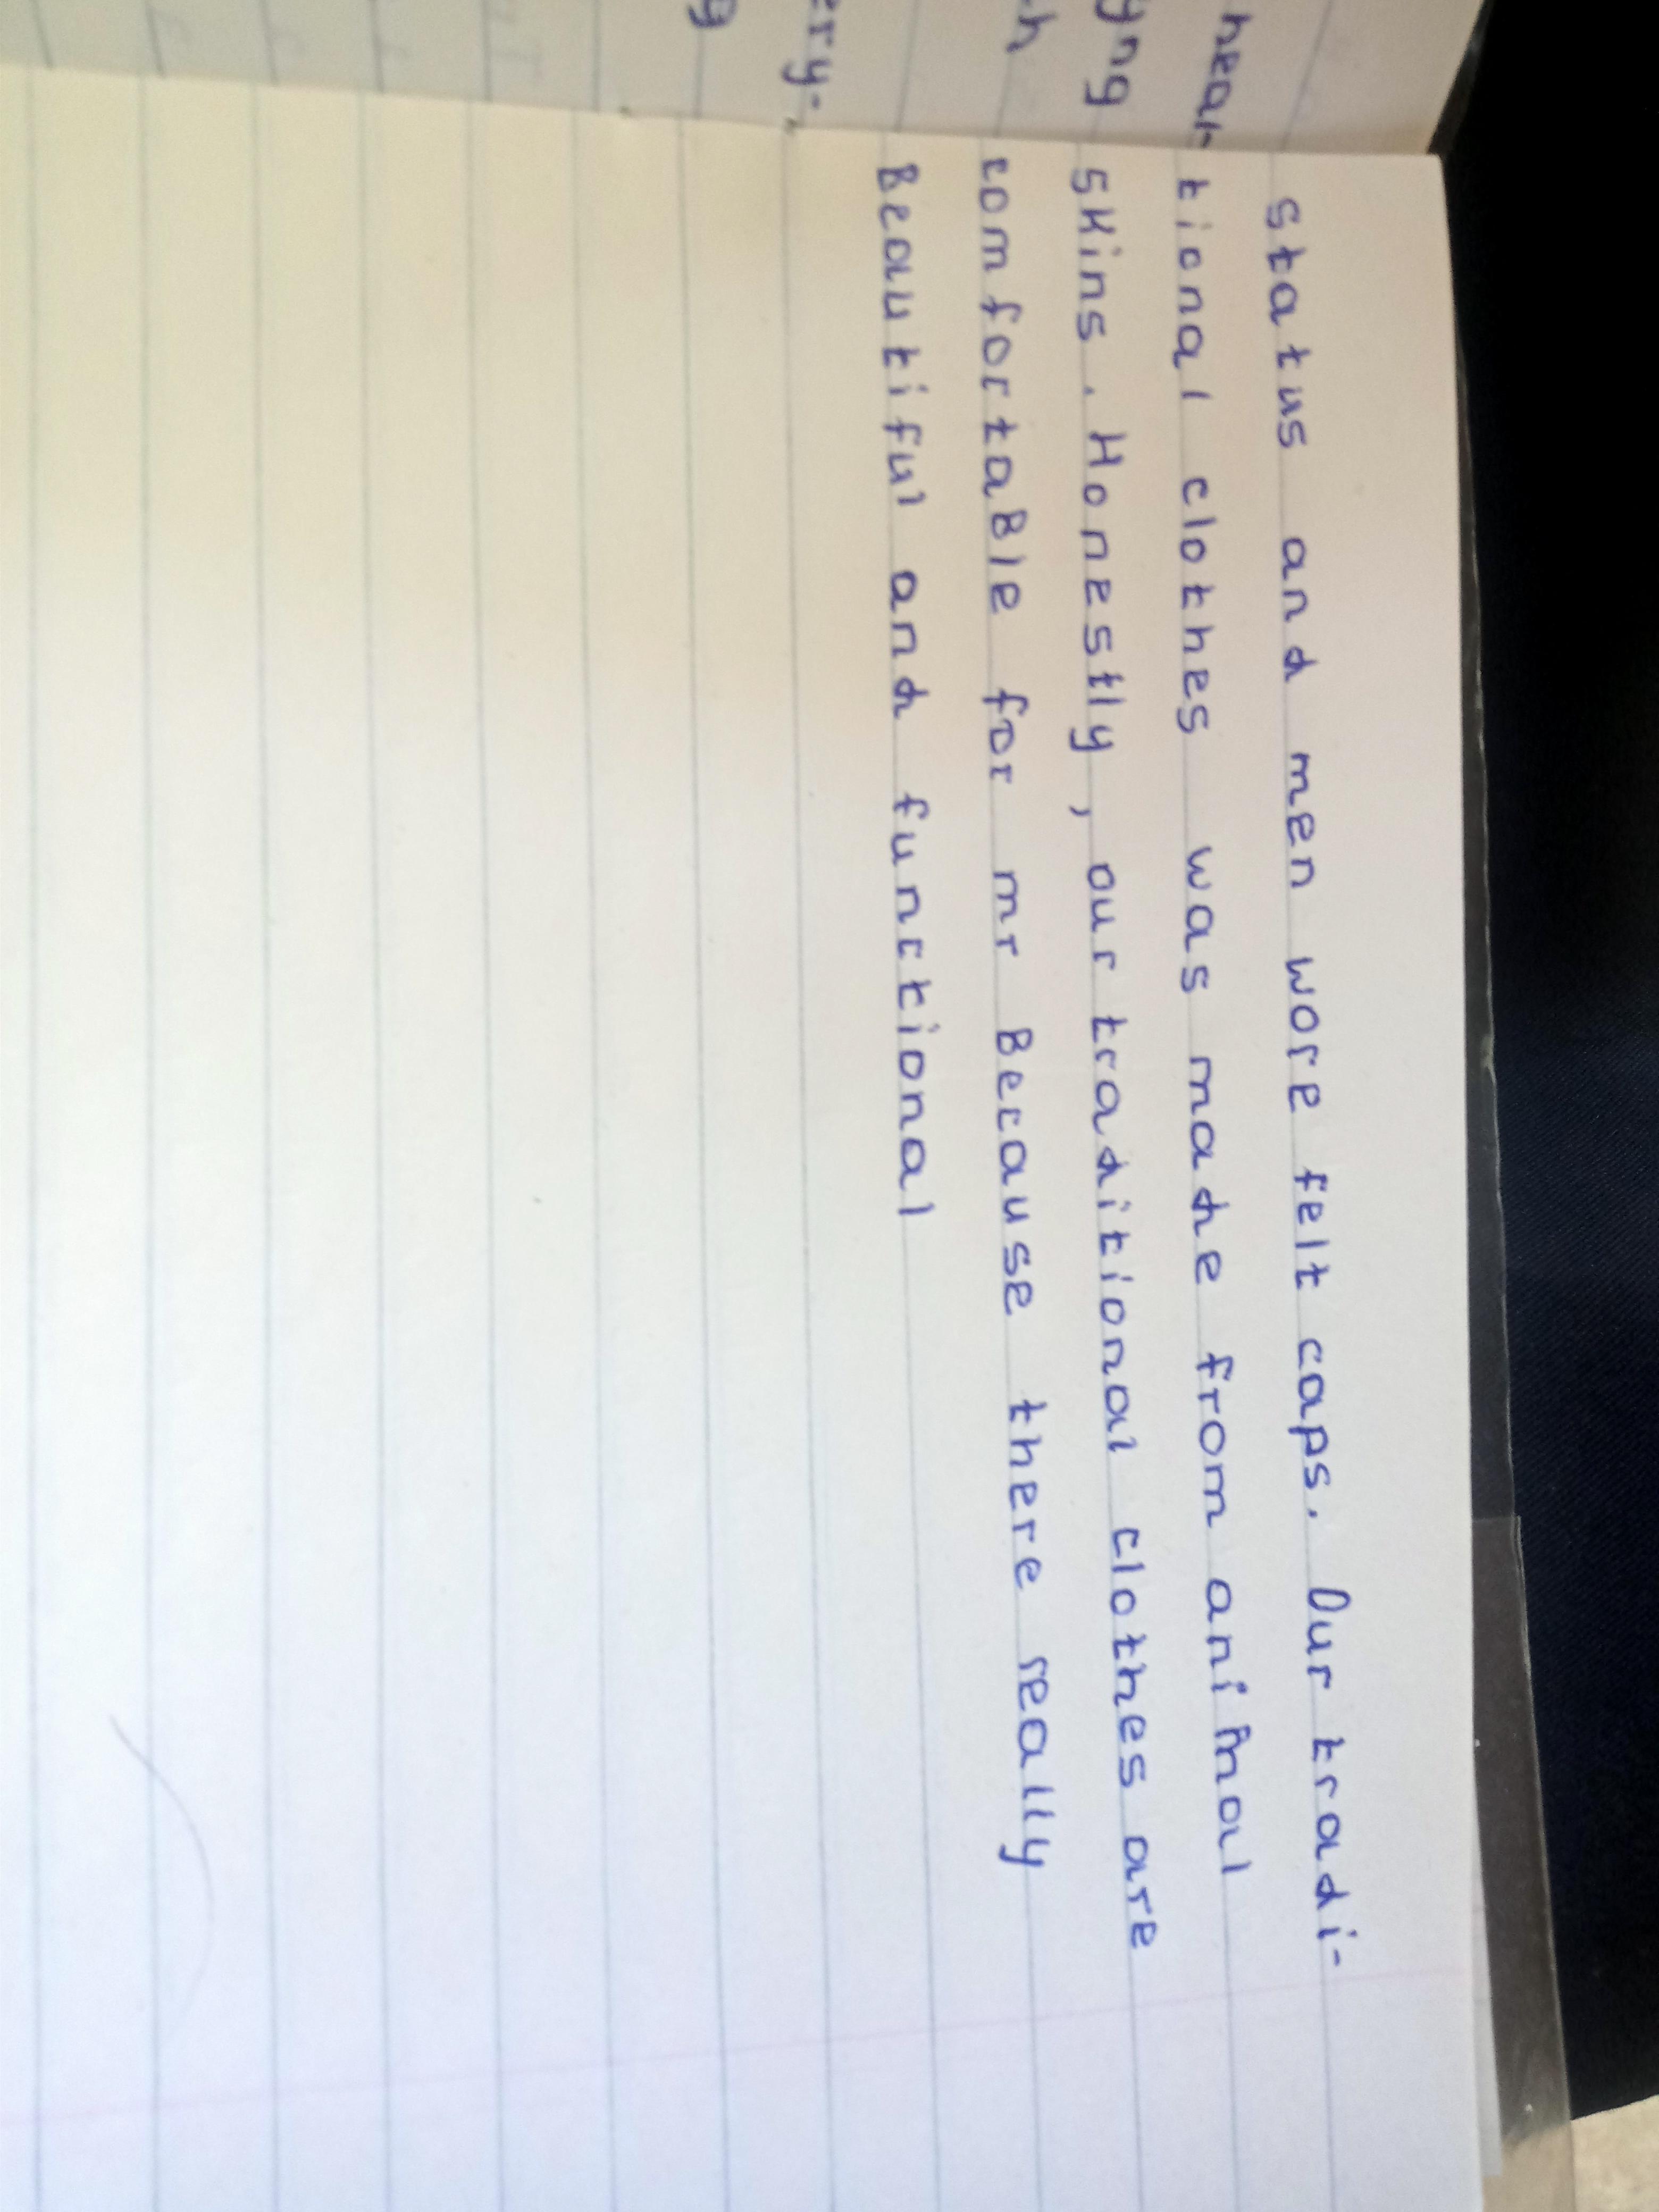 status and men wore felt caps. Our tradi-
tional clothes was made from animal
skins. Honestly, our traditional clothes are
comfortable for mr Because there really
Beautiful and functional